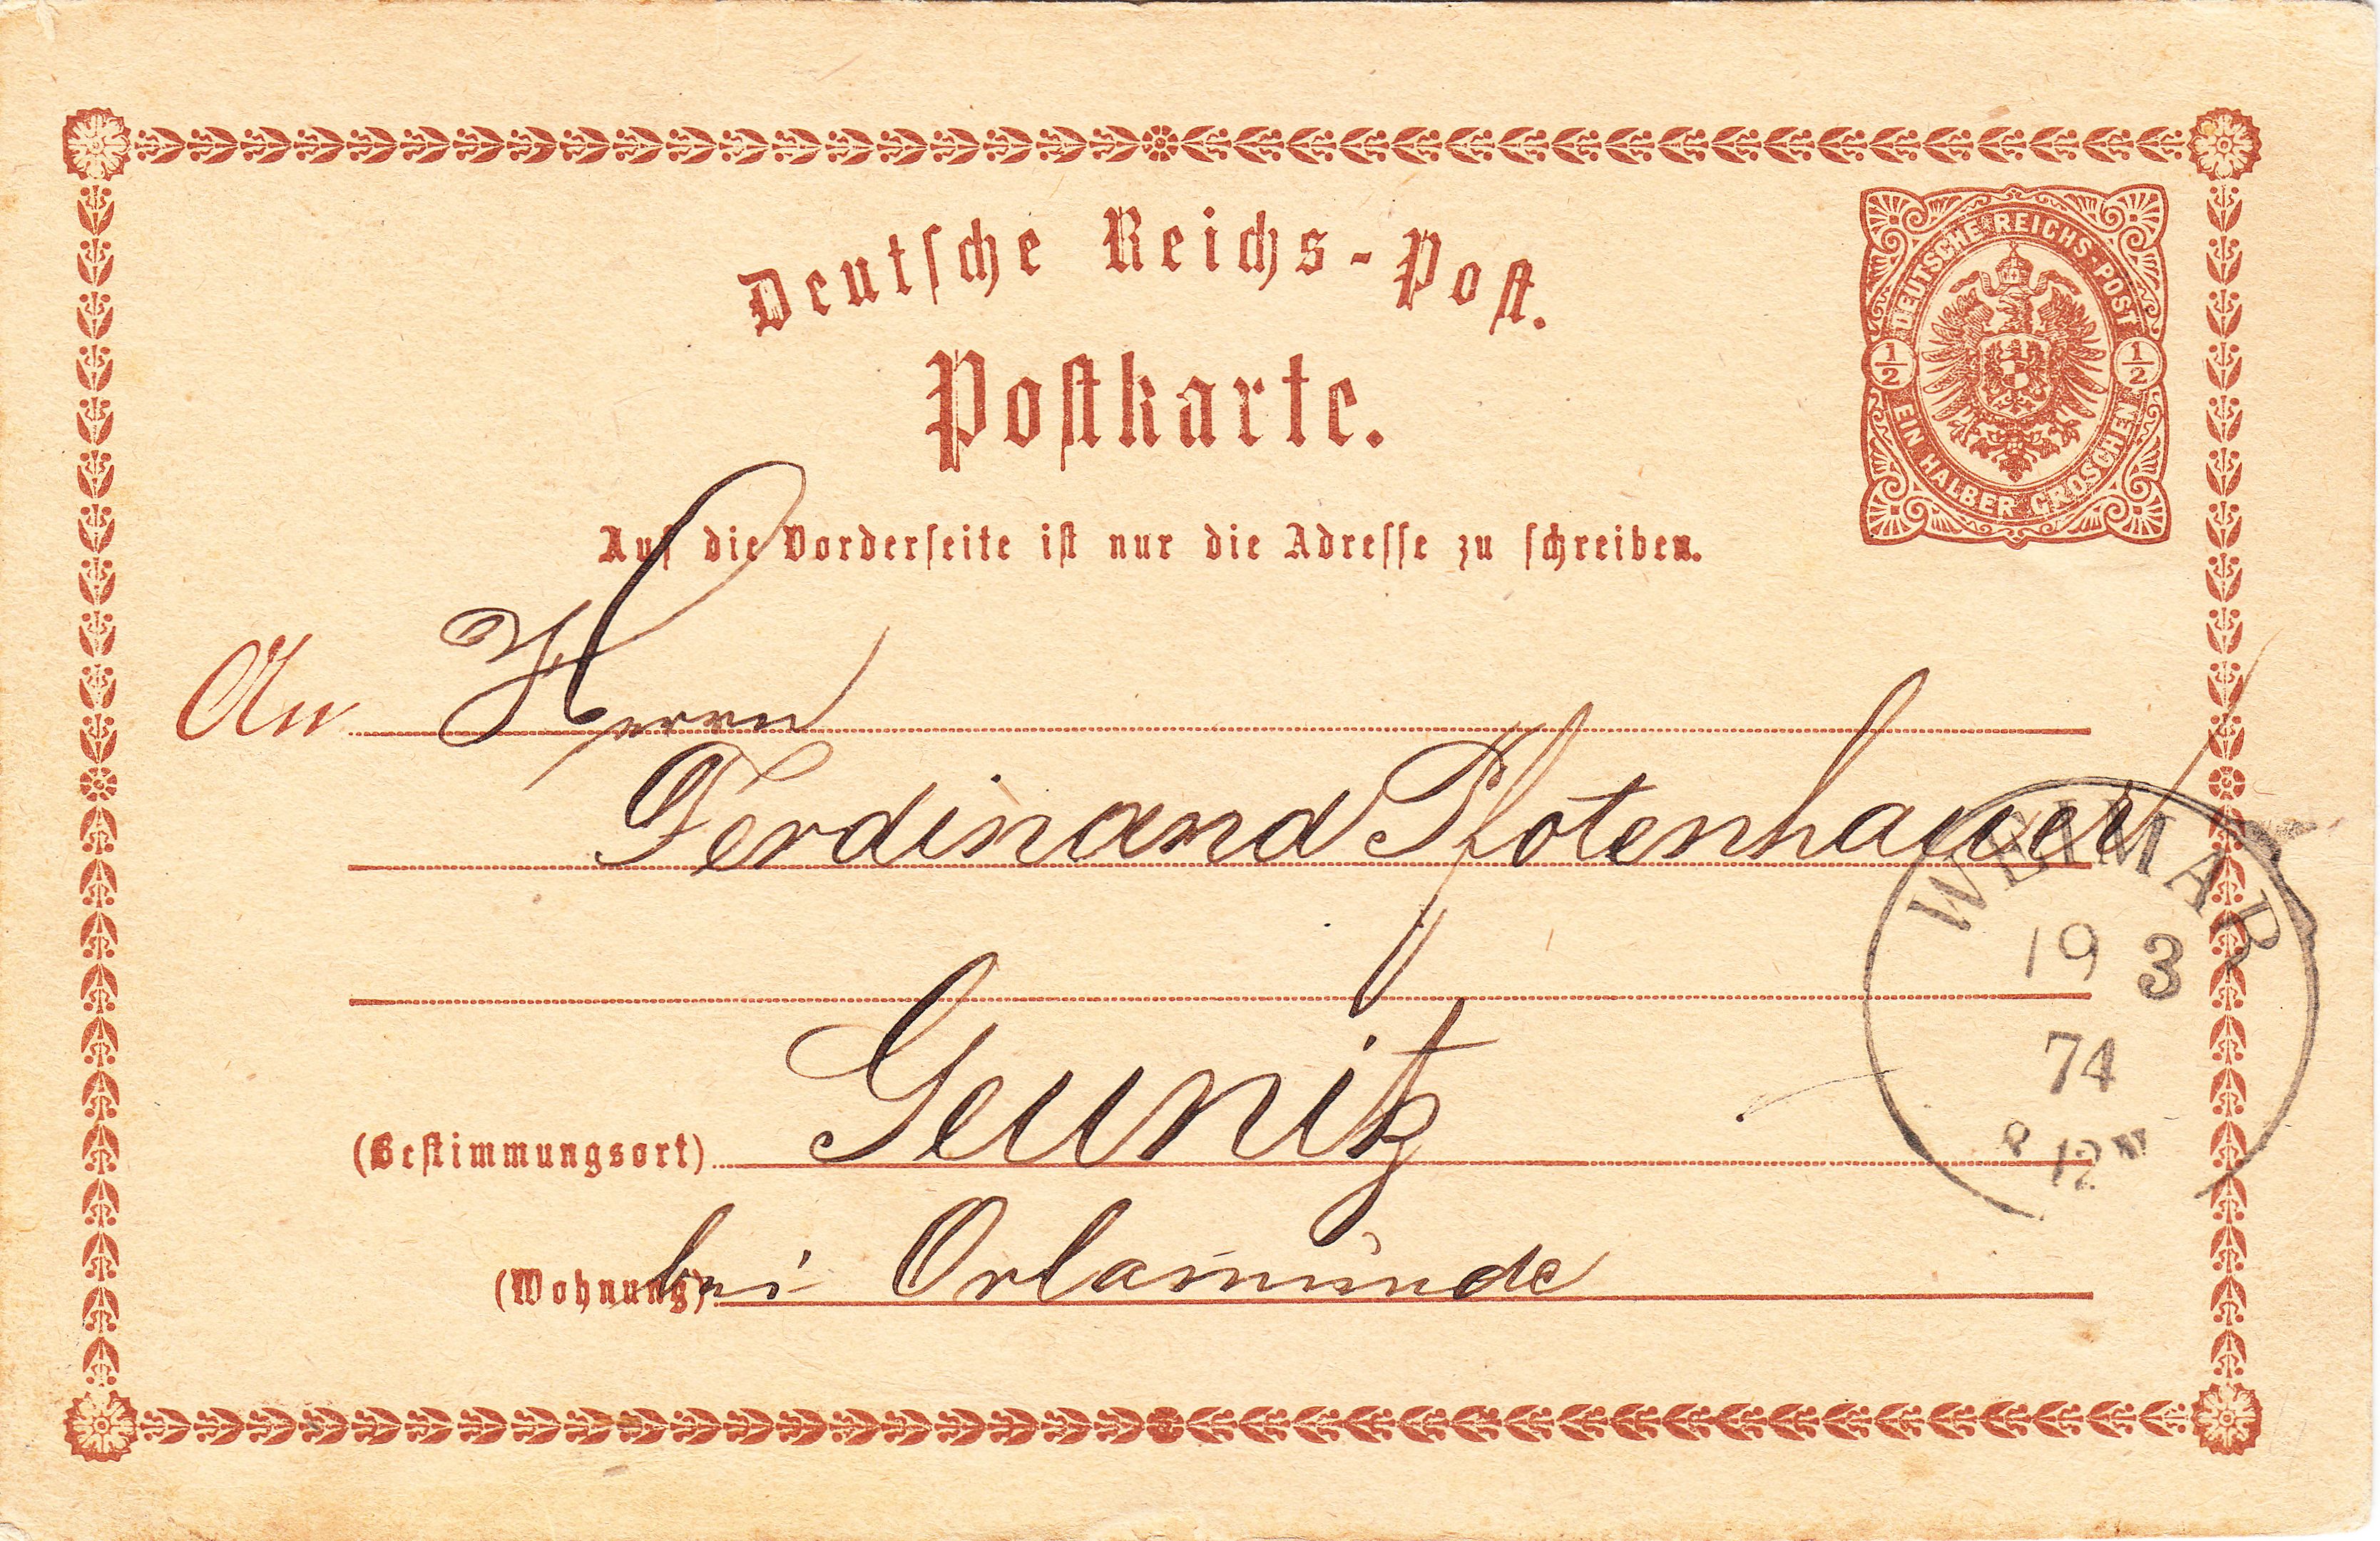 Deutsche Reichs-Post.
Postkarte.
DEUTSCHE REICHS-POST
1/2 1/2
EIN HALBER GROSCHEN
Auf die Vorderseite ist nur die Adresse zu schreiben.
An Herrn
Ferdinand Pfotenhauer
WEIMAR
19 3
74
12
(Bestimmungsort) Geunitz
(Wohnung) bei Orlamünde